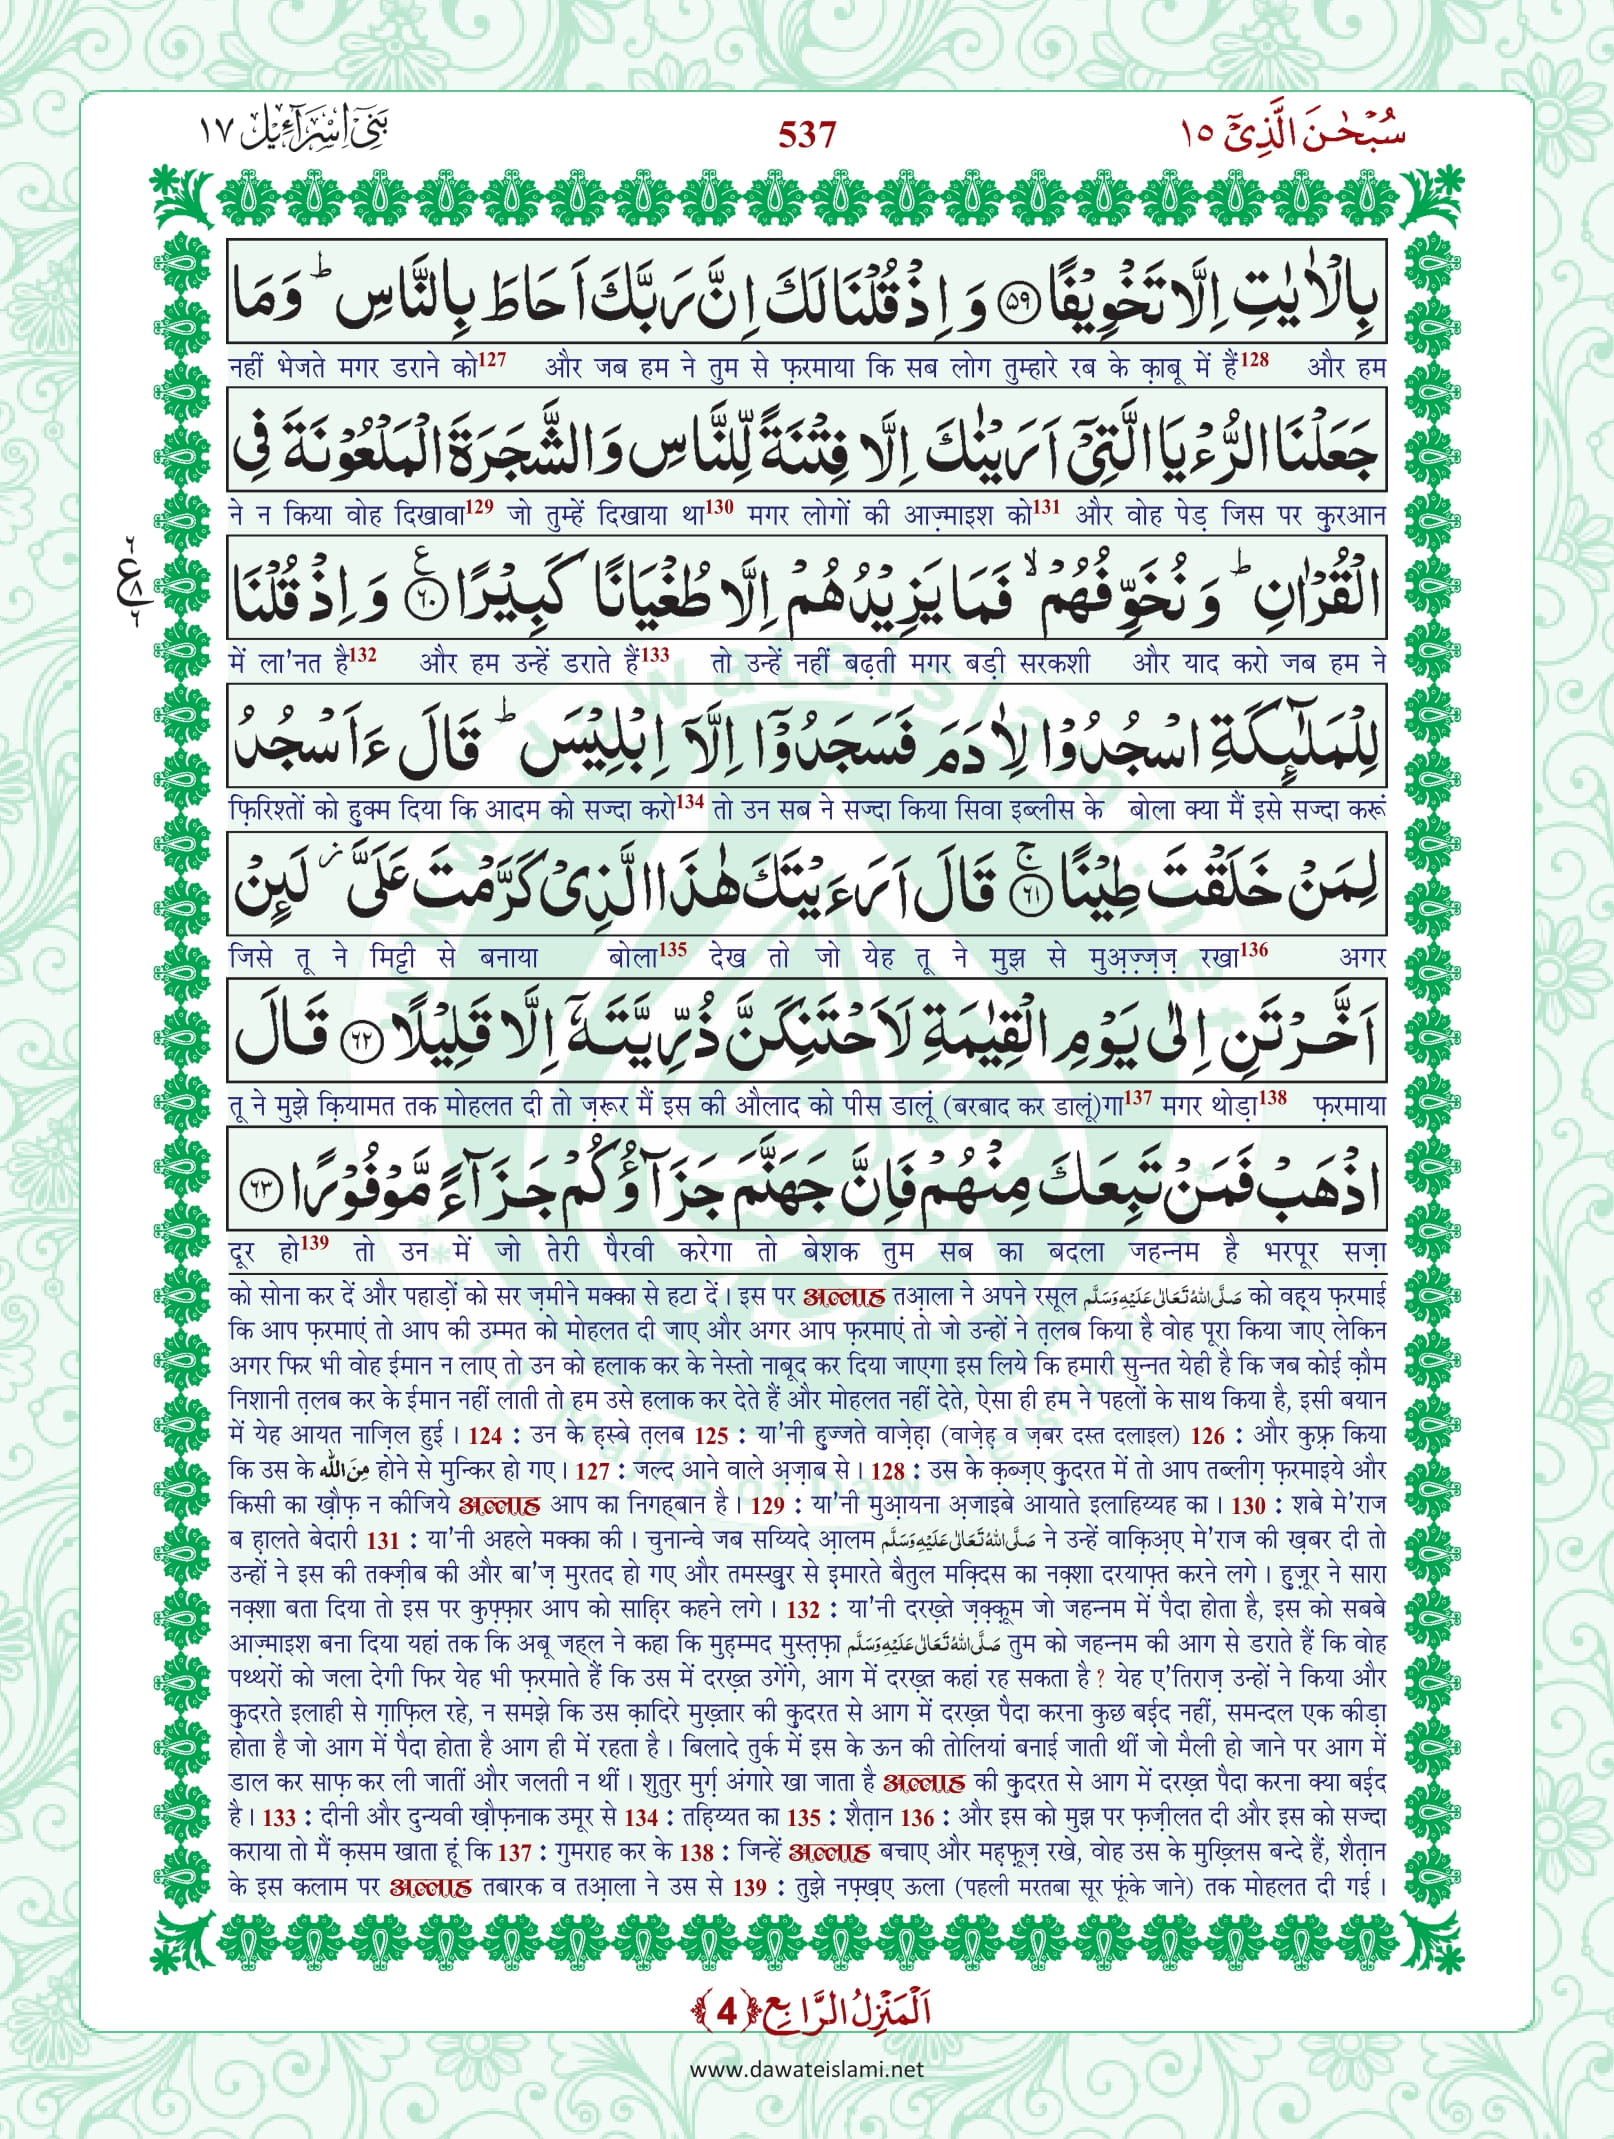 بَنِیْٓ اِسْرَآءِیْل ١٧
537
سُبْحٰنَ الَّذِیْٓ ١٥
بِالْاٰیٰتِ اِلَّا تَخْوِیْفًا ﴿٥٩﴾ وَ اِذْ قُلْنَا لَكَ اِنَّ رَبَّكَ اَحَاطَ بِالنَّاسِ ؕ وَ مَا
नहीं भेजते मगर डराने को127 और जब हम ने तुम से फ़रमाया कि सब लोग तुम्हारे रब के क़ाबू में हैं128 और हम
جَعَلْنَا الرُّءْیَا الَّتِیْۤ اَرَیْنٰكَ اِلَّا فِتْنَةً لِّلنَّاسِ وَ الشَّجَرَةَ الْمَلْعُوْنَةَ فِی
ने न किया वोह दिखावा129 जो तुम्हें दिखाया था130 मगर लोगों की आज़्माइश को131 और वोह पेड़ जिस पर क़ुरआन
الْقُرْاٰنِ ؕ وَ نُخَوِّفُهُمْ ۙ فَمَا یَزِیْدُهُمْ اِلَّا طُغْیَانًا كَبِیْرًا ﴿٦٠﴾ ع وَ اِذْ قُلْنَا
٦ ع ٨ ٦
में ला'नत है132 और हम उन्हें डराते हैं133 तो उन्हें नहीं बढ़ती मगर बड़ी सरकशी और याद करो जब हम ने
لِلْمَلٰٓىٕكَةِ اسْجُدُوْا لِاٰدَمَ فَسَجَدُوْۤا اِلَّاۤ اِبْلِیْسَ ؕ قَالَ ءَاَسْجُدُ
फ़िरिश्तों को हुक्म दिया कि आदम को सज्दा करो134 तो उन सब ने सज्दा किया सिवा इब्लीस के बोला क्या मैं इसे सज्दा करूं
لِمَنْ خَلَقْتَ طِیْنًا ﴿٦١﴾ ج قَالَ اَرَءَیْتَكَ هٰذَا الَّذِیْ كَرَّمْتَ عَلَیَّ ؗ لَىِٕنْ
जिसे तू ने मिट्टी से बनाया बोला135 देख तो जो येह तू ने मुझ से मुअ़ज़्ज़ज़ रखा136 अगर
اَخَّرْتَنِ اِلٰی یَوْمِ الْقِیٰمَةِ لَاَحْتَنِكَنَّ ذُرِّیَّتَهٗۤ اِلَّا قَلِیْلًا ﴿٦٢﴾ قَالَ
तू ने मुझे क़ियामत तक मोहलत दी तो ज़रूर मैं इस की औलाद को पीस डालूं (बरबाद कर डालूं)गा137 मगर थोड़ा138 फ़रमाया
اذْهَبْ فَمَنْ تَبِعَكَ مِنْهُمْ فَاِنَّ جَهَنَّمَ جَزَآؤُكُمْ جَزَآءً مَّوْفُوْرًا ﴿٦٣﴾
दूर हो139 तो उन में जो तेरी पैरवी करेगा तो बेशक तुम सब का बदला जहन्नम है भरपूर सज़ा
को सोना कर दें और पहाड़ों को सर ज़मीने मक्का से हटा दें। इस पर अल्लाह तआ़ला ने अपने रसूल صَلَّى اللهُ تَعَالٰى عَلَيْهِ وَسَلَّم को वह़्य फ़रमाई
कि आप फ़रमाएं तो आप की उम्मत को मोहलत दी जाए और अगर आप फ़रमाएं तो जो उन्हों ने त़लब किया है वोह पूरा किया जाए लेकिन
अगर फिर भी वोह ईमान न लाए तो उन को हलाक कर के नेस्तो नाबूद कर दिया जाएगा इस लिये कि हमारी सुन्नत येही है कि जब कोई क़ौम
निशानी त़लब कर के ईमान नहीं लाती तो हम उसे हलाक कर देते हैं और मोहलत नहीं देते, ऐसा ही हम ने पहलों के साथ किया है, इसी बयान
में येह आयत नाज़िल हुई। 124 : उन के ह़स्बे त़लब 125 : या'नी हु़ज्जते वाज़ेह़ा (वाज़ेह़ व ज़बर दस्त दलाइल) 126 : और कुफ़्र किया
कि उस के مِنَ الله होने से मुन्किर हो गए। 127 : जल्द आने वाले अ़ज़ाब से। 128 : उस के क़ब्ज़ए क़ुदरत में तो आप तब्लीग़ फ़रमाइये और
किसी का ख़ौफ़ न कीजिये अल्लाह आप का निगह्बान है। 129 : या'नी मुआ़यना अ़जाइबे आयाते इलाहिय्यह का। 130 : शबे मे'राज
ब ह़ालते बेदारी 131 : या'नी अहले मक्का की। चुनान्चे जब सय्यिदे आ़लम صَلَّى اللهُ تَعَالٰى عَلَيْهِ وَسَلَّم ने उन्हें वाक़िअ़ए मे'राज की ख़बर दी तो
उन्हों ने इस की तक्ज़ीब की और बा'ज़ मुरतद हो गए और तमस्ख़ुर से इमारते बैतुल मक़्दिस का नक़्शा दरयाफ़्त करने लगे। हुज़ूर ने सारा
नक़्शा बता दिया तो इस पर कुफ़्फ़ार आप को साह़िर कहने लगे। 132 : या'नी दरख़्ते ज़क़्क़ूम जो जहन्नम में पैदा होता है, इस को सबबे
आज़्माइश बना दिया यहां तक कि अबू जह्ल ने कहा कि मुह़म्मद मुस्त़फ़ा صَلَّى اللهُ تَعَالٰى عَلَيْهِ وَسَلَّم तुम को जहन्नम की आग से डराते हैं कि वोह
पथ्थरों को जला देगी फिर येह भी फ़रमाते हैं कि उस में दरख़्त उगेंगे, आग में दरख़्त कहां रह सकता है ? येह ए'तिराज़ उन्हों ने किया और
क़ुदरते इलाही से ग़ाफ़िल रहे, न समझे कि उस क़ादिरे मुख़्तार की क़ुदरत से आग में दरख़्त पैदा करना कुछ बई़द नहीं, समन्दल एक कीड़ा
होता है जो आग में पैदा होता है आग ही में रहता है। बिलादे तुर्क में इस के ऊन की तोलियां बनाई जाती थीं जो मैली हो जाने पर आग में
डाल कर साफ़ कर ली जातीं और जलती न थीं। शुतुर मुर्ग़ अंगारे खा जाता है अल्लाह की क़ुदरत से आग में दरख़्त पैदा करना क्या बई़द
है। 133 : दीनी और दुन्यवी ख़ौफ़नाक उमूर से 134 : तह़िय्यत का 135 : शैत़ान 136 : और इस को मुझ पर फ़ज़ीलत दी और इस को सज्दा
कराया तो मैं क़सम खाता हूं कि 137 : गुमराह कर के 138 : जिन्हें अल्लाह बचाए और मह़फ़ूज़ रखे, वोह उस के मुख़्लिस बन्दे हैं, शैत़ान
के इस कलाम पर अल्लाह तबारक व तआ़ला ने उस से 139 : तुझे नफ़्ख़ए ऊला (पहली मरतबा सूर फूंके जाने) तक मोहलत दी गई।
اَلْمَنْزِلُ الرَّابِع ﴿4﴾
www.dawateislami.net